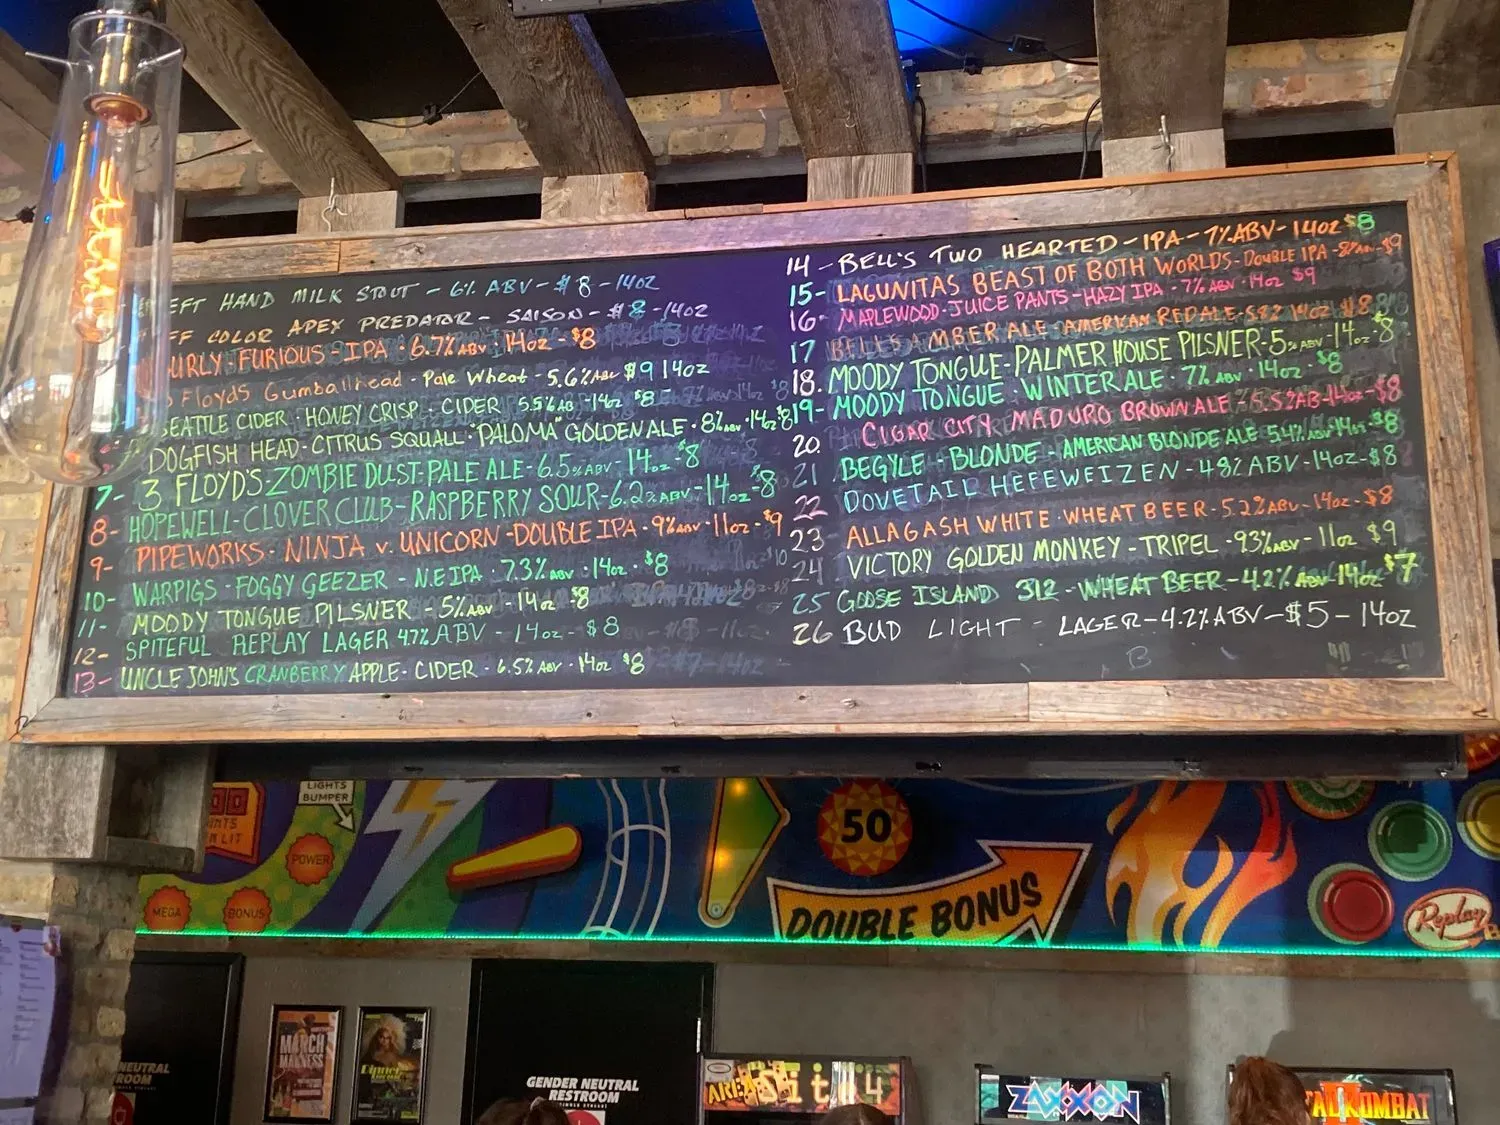 EFT HAND MILK STOUT - 6% ABV - $8 - 14OZ
FF COLOR APEX PREDATOR - SAISON - $8 - 14OZ
URLY - FURIOUS - IPA · 6.7% ABV · 14OZ - $8
FLOYDS Gumballhead - Pale Wheat - 5.6% ABV $9 14OZ
SEATTLE CIDER · HONEY CRISP - CIDER 5.5% AB - 14OZ $8
DOGFISH HEAD - CITRUS SQUALL · "PALOMA" GOLDEN ALE · 8% ABV · 14OZ · $8
7- 3 FLOYD'S · ZOMBIE DUST - PALE ALE - 6.5% ABV - 14OZ - $8
8- HOPEWELL - CLOVER CLUB - RASPBERRY SOUR - 6.2% ABV - 14OZ - $8
9- PIPEWORKS · NINJA v. UNICORN - DOUBLE IPA · 9% ABV · 11OZ - $9
10- WARPIGS · FOGGY GEEZER - N.E IPA · 7.3% ABV · 14OZ · $8
11- MOODY TONGUE PILSNER - 5% ABV - 14OZ - $8
12- SPITEFUL REPLAY LAGER 4.7% ABV - 14OZ - $8
13- UNCLE JOHN'S CRANBERRY APPLE - CIDER · 6.5% ABV · 14OZ $8
14 - BELL'S TWO HEARTED - IPA - 7% ABV - 14OZ $8
15- LAGUNITAS BEAST OF BOTH WORLDS - DOUBLE IPA - 8% ABV - $9
16- MAPLEWOOD - JUICE PANTS - HAZY IPA · 7% ABV · 14OZ $9
17 BELL'S AMBER ALE - AMERICAN RED ALE - 5.8% 14OZ $8
18. MOODY TONGUE - PALMER HOUSE PILSNER - 5% ABV - 14OZ - $8
19- MOODY TONGUE · WINTER ALE · 7% ABV · 14OZ · $8
20. CIGAR CITY MADURO BROWN ALE 5.5% AB - 14OZ - $8
21 BEGYLE - BLONDE - AMERICAN BLONDE ALE 5.4% ABV 14OZ - $8
22 DOVETAIL HEFEWEIZEN - 4.8% ABV - 14OZ - $8
23 ALLAGASH WHITE · WHEAT BEER - 5.2% ABV - 14OZ - $8
24 VICTORY GOLDEN MONKEY - TRIPEL · 9.3% ABV - 11OZ $9
25 GOOSE ISLAND 312 - WHEAT BEER - 4.2% ABV 14OZ $7
26 BUD LIGHT - LAGER - 4.2% ABV - $5 - 14OZ
LIGHTS
BUMPER
POWER
MEGA
BONUS
50
DOUBLE BONUS
Replay
MARCH
MADNESS
NEUTRAL
ROOM
GENDER NEUTRAL
RESTROOM
AREA
Site 4
ZAXXON
TAL KOMBAT
II